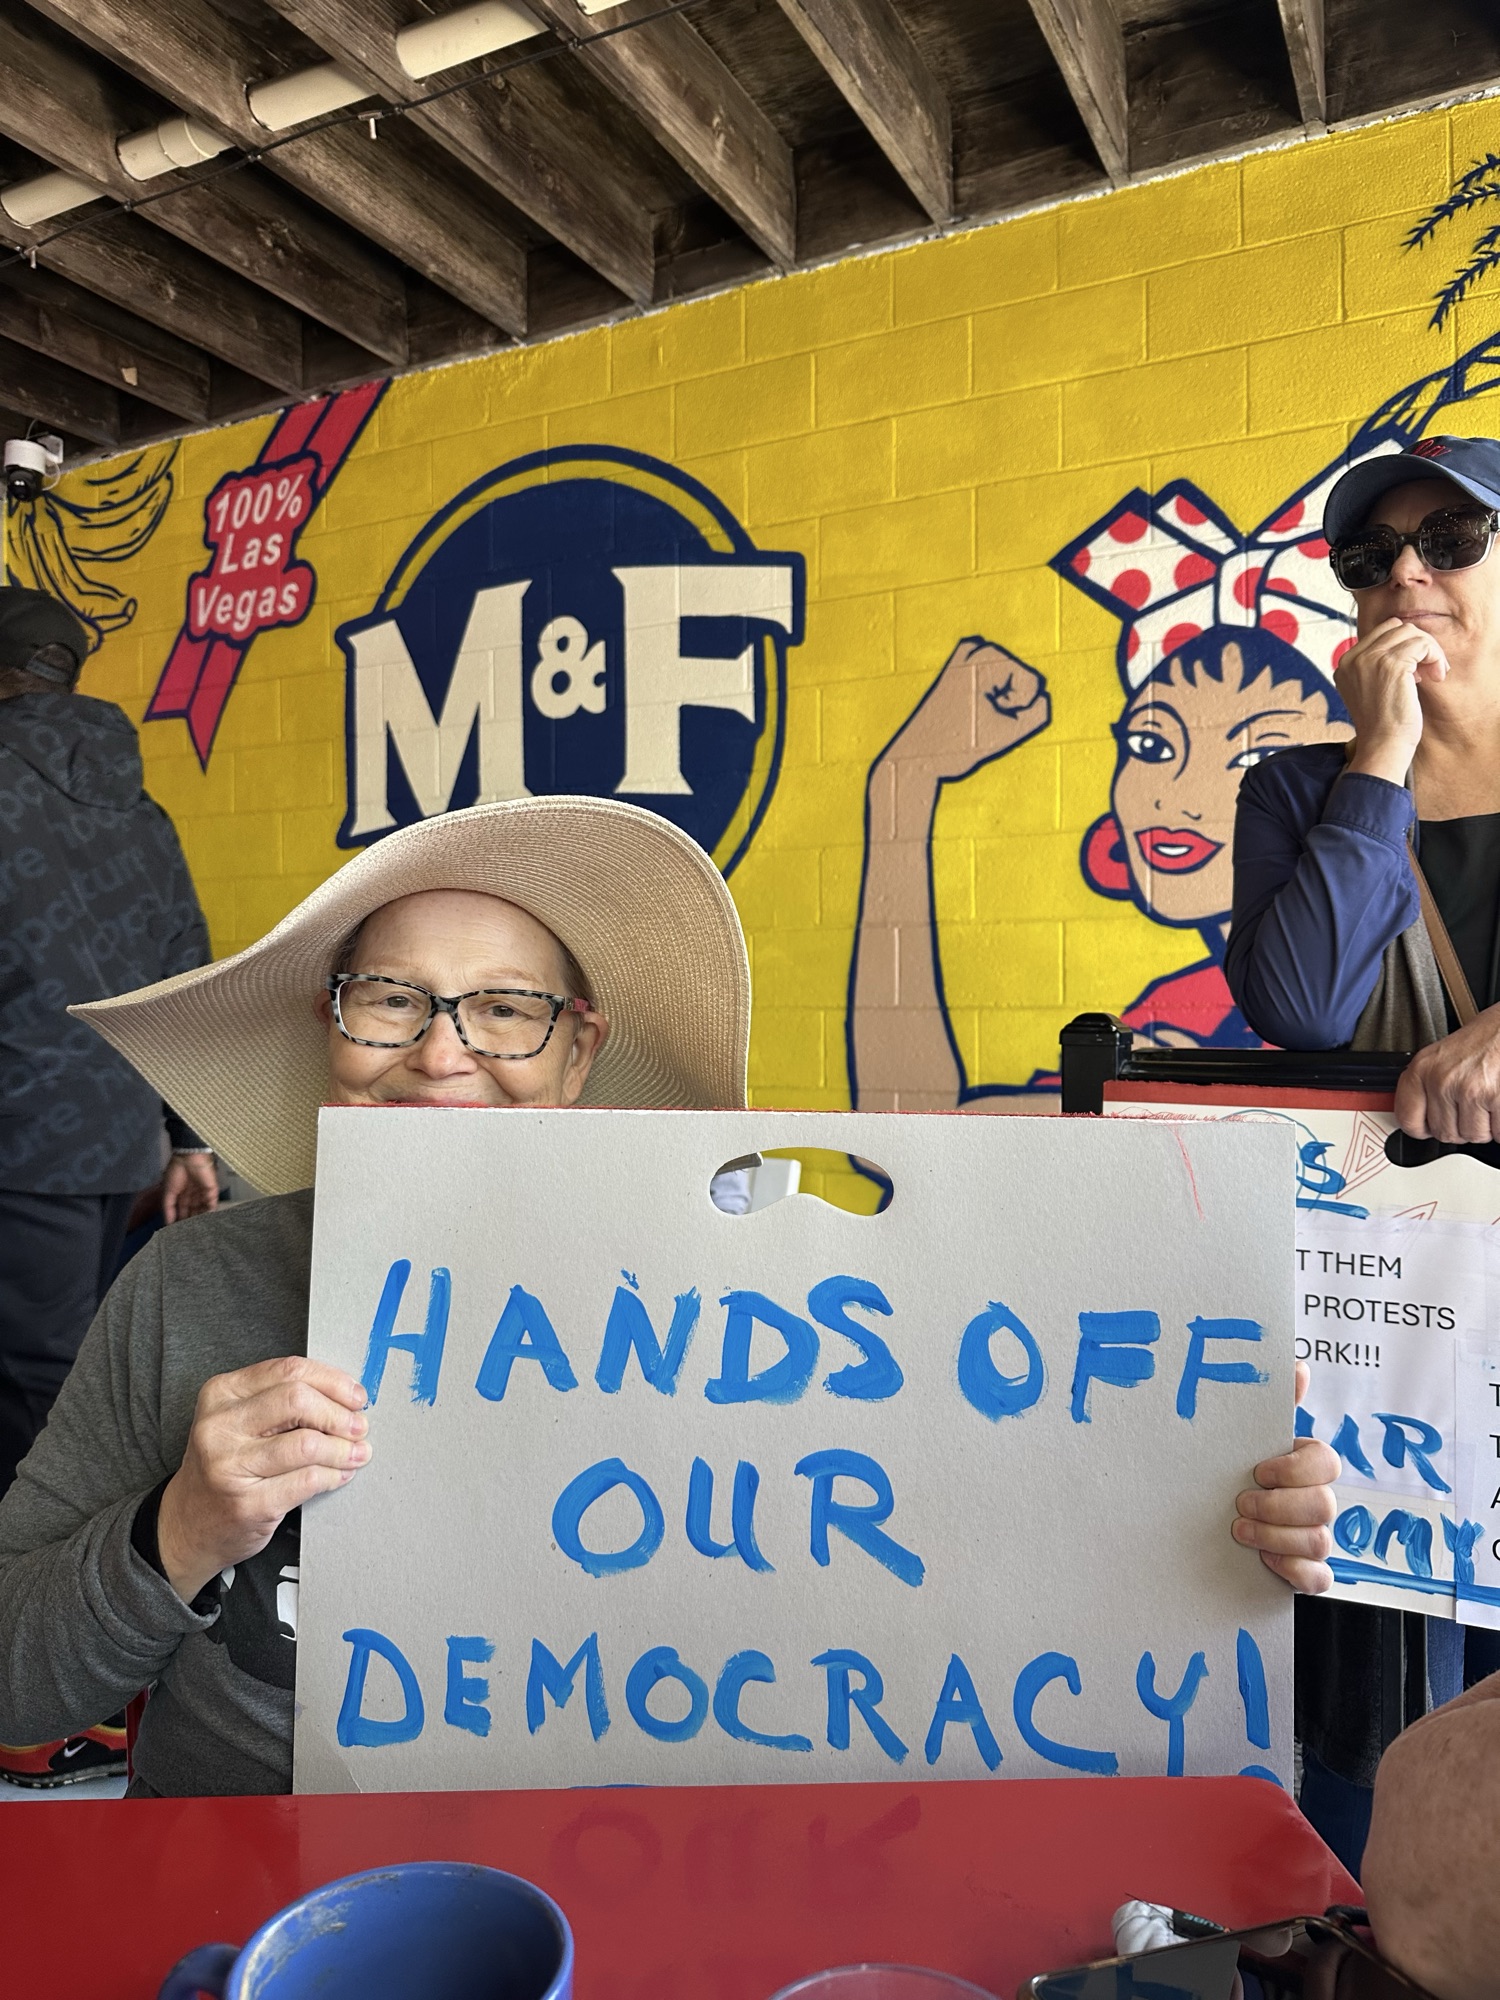 100%
Las
Vegas
M&F
HANDS OFF
OUR
DEMOCRACY!
S
T THEM
PROTESTS
ORK!!!
UR
OMY